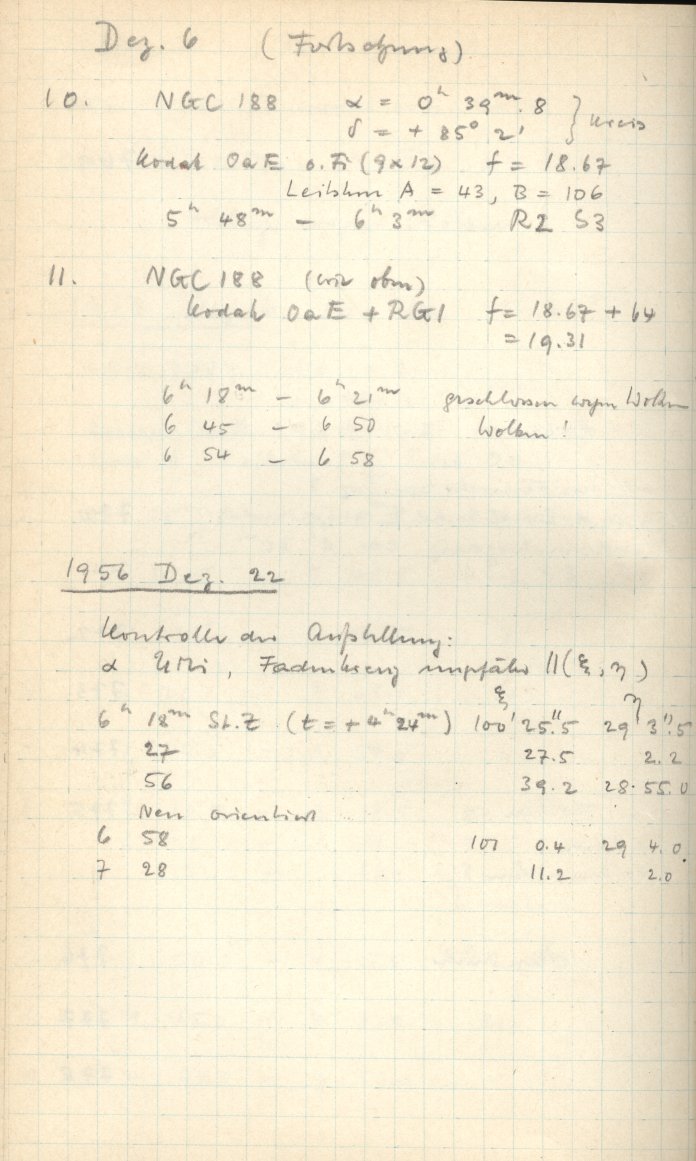 Dez. 6 (Fortsetzung)
10. NGC 188 α = 0ʰ 39ᵐ.8
δ = + 85° 2' } Kreis
Kodak OaE o. Fi (9x12) f = 18.67
Leitstern A = 43, B = 106
5ʰ 48ᵐ – 6ʰ 3ᵐ R2 S3
11. NGC 188 (wie oben)
Kodak OaE + RG1 f = 18.67 + 64
= 19.31
6ʰ 18ᵐ – 6ʰ 21ᵐ geschlossen wegen Wolken
6 45 – 6 50 Wolken!
6 54 – 6 58
1956 Dez. 22
Kontrolle der Aufstellung:
α UMi, Fadenkreuz ungefähr ||(ξ, η)
ξ η
6ʰ 18ᵐ St.Z. (t = + 4ʰ 24ᵐ) 100' 25".5 29' 3".5
27 27.5 2.2
56 39.2 28 55.0
Neu orientiert
6 58 101 0.4 29 4.0
7 28 11.2 2.0